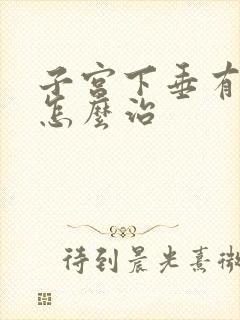 子宮下垂有
怎麼治
待到晨光熹微